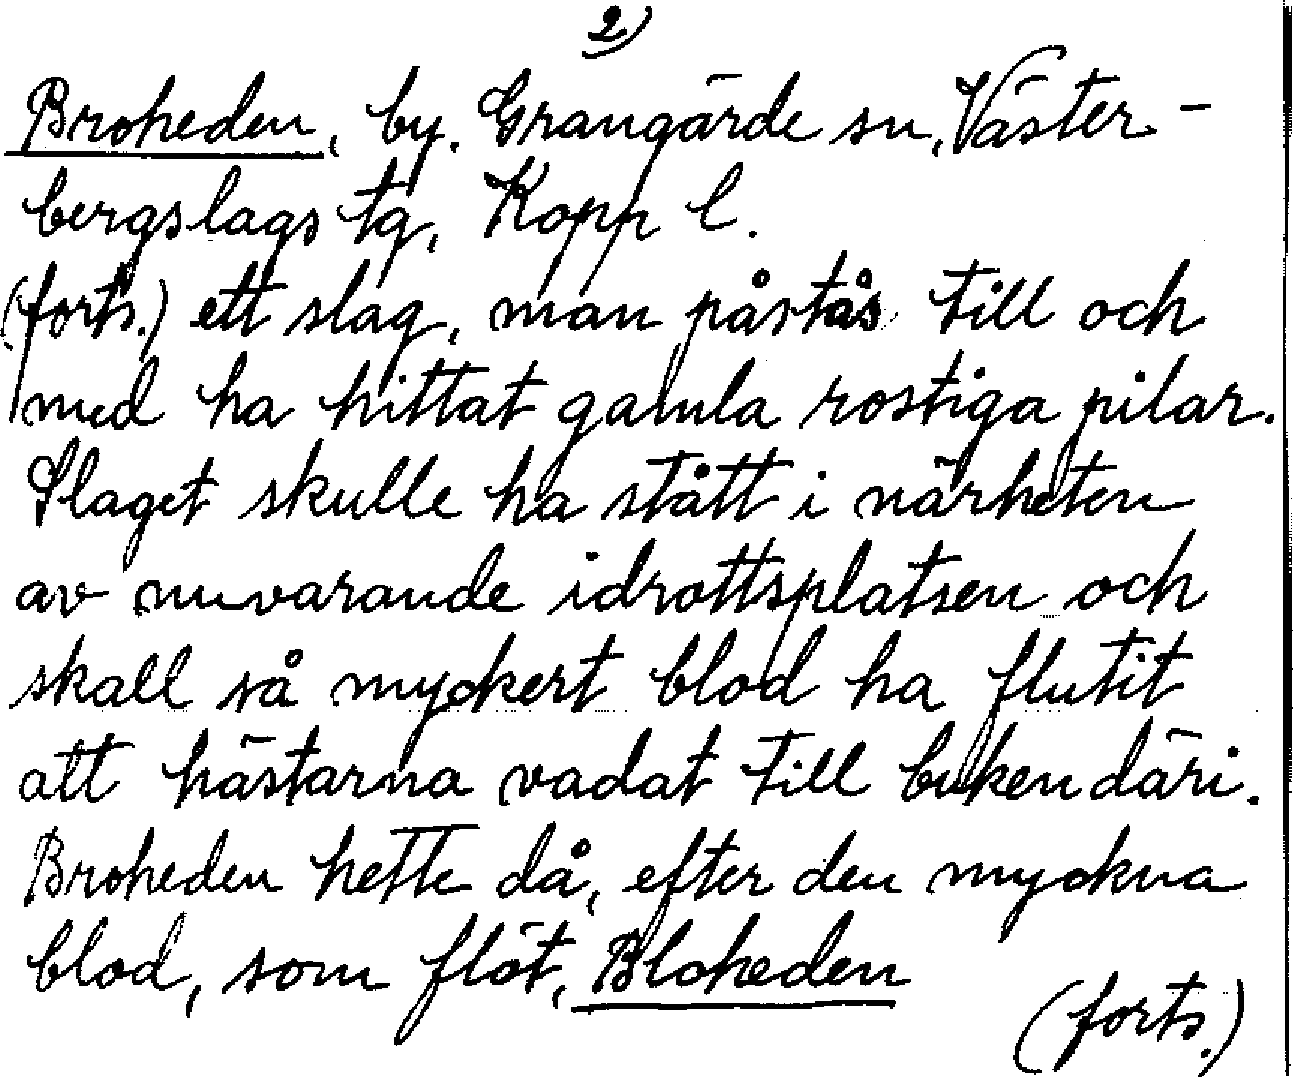 2)
Broheden, by. Grangärde sn, Väster-
bergslags tg, Kopp l.
(forts.) ett slag, man påstås till och
med ha hittat gamla rostiga pilar.
Slaget skulle ha stått i närheten
av nuvarande idrottsplatsen och
skall så myckert blod ha flutit
att hästarna vadat till buken däri.
Broheden hette då, efter den myckna
blod, som flöt, Bloheden
(forts.)